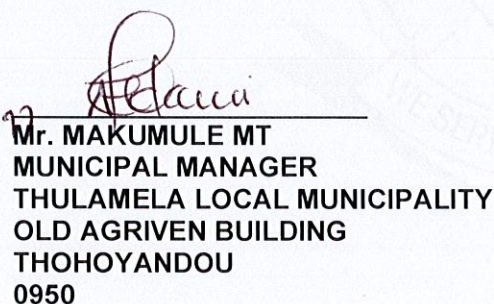 Mr. MAKUMULE MT
MUNICIPAL MANAGER
THULAMELA LOCAL MUNICIPALITY
OLD AGRIVEN BUILDING
THOHOYANDOU
0950